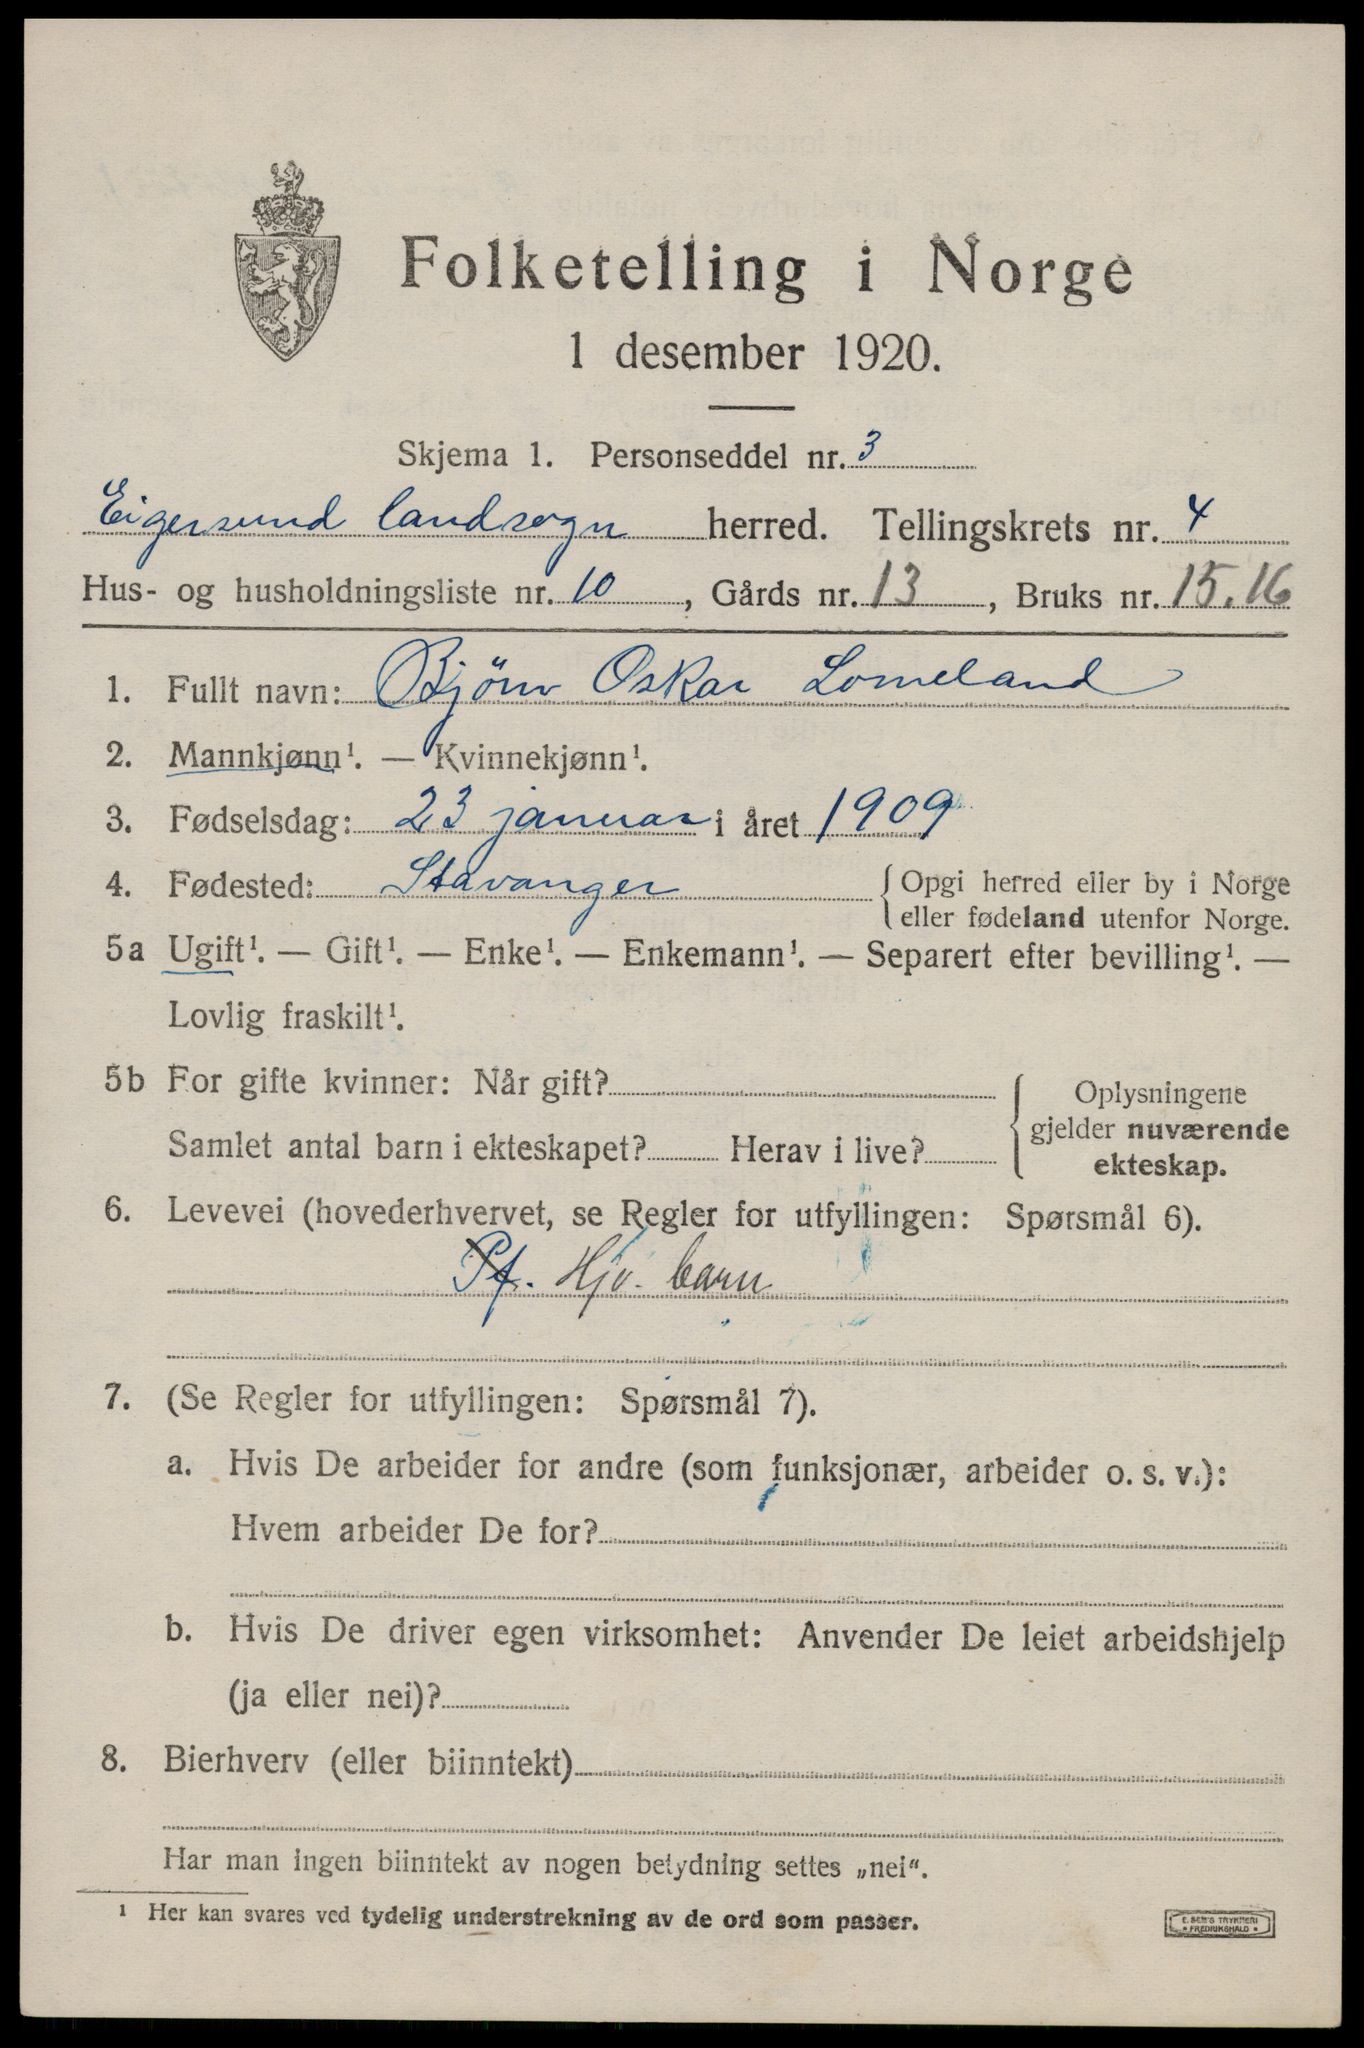 Folketelling i Norge
1 desember 1920.
Skjema 1. Personseddel nr. 3
Eigersund landsogn herred. Tellingskrets nr. 4
Hus- og husholdningsliste nr. 10, Gårds nr. 13, Bruks nr. 15.16
1. Fullt navn: Bjørn Oskar Lomeland
2. Mannkjønn¹. — Kvinnekjønn¹.
3. Fødselsdag: 23 januar i året 1909
4. Fødested: Stavanger { Opgi herred eller by i Norge
eller fødeland utenfor Norge.
5a Ugift¹. — Gift¹. — Enke¹. — Enkemann¹. — Separert efter bevilling¹. —
Lovlig fraskilt¹.
5b For gifte kvinner: Når gift? { Oplysningene
gjelder nuværende
Samlet antal barn i ekteskapet? Herav i live?
ekteskap.
6. Levevei (hovederhvervet, se Regler for utfyllingen: Spørsmål 6).
Hjv. barn
7. (Se Regler for utfyllingen: Spørsmål 7).
a. Hvis De arbeider for andre (som funksjonær, arbeider o. s. v.):
Hvem arbeider De for?
b. Hvis De driver egen virksomhet: Anvender De leiet arbeidshjelp
(ja eller nei)?
8. Bierhverv (eller biinntekt)
Har man ingen biinntekt av nogen betydning settes „nei“.
¹ Her kan svares ved tydelig understrekning av de ord som passer.
E. SEM'S TRYKKERI
• FREDRIKSHALD •